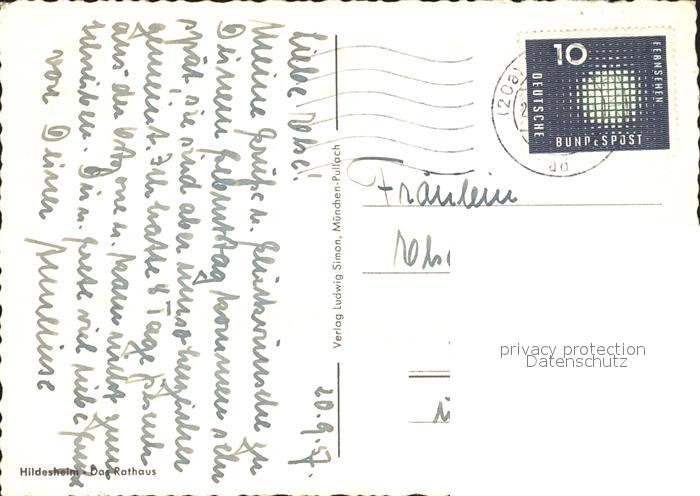 Liebe Else!
20.9.57.
Meine Grüße u. Glückwünsche zu
Deinem Geburtstag kommen sehr
spät, sie sind aber umso herzlicher
gemeint. Ich hatte 8 Tage Besuch
aus der und kam nicht zum
Schreiben. Dir u. viel liebe Grüße
von Deiner
Verlag Ludwig Simon, München-Pullach
Hildesheim - Das Rathaus
10
FERNSEHEN
DEUTSCHE
BUNDESPOST
(20a)
Fräulein
Else
privacy protection
Datenschutz